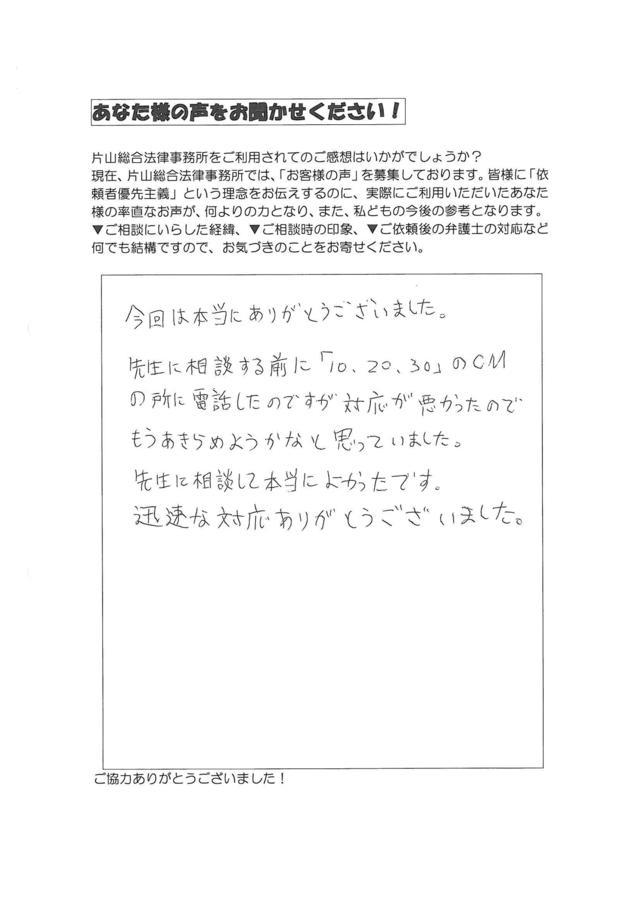 あなた様の声をお聞かせください!
片山総合法律事務所をご利用されてのご感想はいかがでしょうか?
現在、片山総合法律事務所では、「お客様の声」を募集しております。皆様に「依
頼者優先主義」という理念をお伝えするのに、実際にご利用いただいたあなた
様の率直なお声が、何よりの力となり、また、私どもの今後の参考となります。
▼ご相談にいらした経緯、▼ご相談時の印象、▼ご依頼後の弁護士の対応など
何でも結構ですので、お気づきのことをお寄せください。
今回は本当にありがとうございました。
先生に相談する前に「10、20、30」のCM
の所に電話したのですが対応が悪かったので
もうあきらめようかなと思っていました。
先生に相談して本当によかったです。
迅速な対応ありがとうございました。
ご協力ありがとうございました!